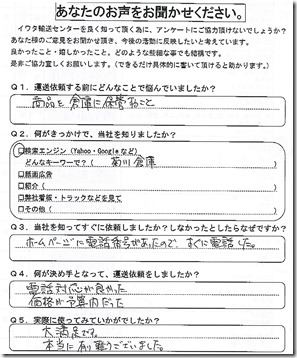 あなたのお声をお聞かせください。
イワタ輸送センターを良く知って頂く為に、アンケートにご協力頂けないでしょうか?
あなた様のご意見をお聞かせ頂き、今後の活動に反映したいと考えています。
良かったこと・嬉しかったこと、どのような些細な事でも結構です。
是非ご協力宜しくお願いします。(できるだけ具体的に書いて頂けると助かります。)
Q1. 運送依頼する前にどんなことで悩んでいましたか?
商品を倉庫に保管すること
Q2. 何がきっかけで、当社を知りましたか?
□検索エンジン(Yahoo・Googleなど)
どんなキーワードで?( 菊川 倉庫 )
□紙面広告
□紹介( )
□弊社看板・トラックなどを見て
□その他( )
Q3. 当社を知ってすぐに依頼しましたか?しなかったとしたらなぜですか?
ホームページに電話番号があったので、すぐに電話した。
Q4. 何が決め手となって、運送依頼をしましたか?
電話対応が良かった
価格が予算内だった
Q5. 実際に使ってみていかがでしたか?
大満足です。
本当に有り難うございました。